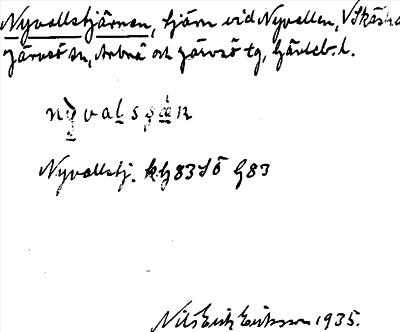 Nyvallstjärnen, tjärn vid Nyvallen, V Skästra
Järvsö sn, Arbrå och Järvsö tg, Gävleb. l.
Nyvallstj. kbl 83 SÖ G83
Nils Erik Eriksson 1935.